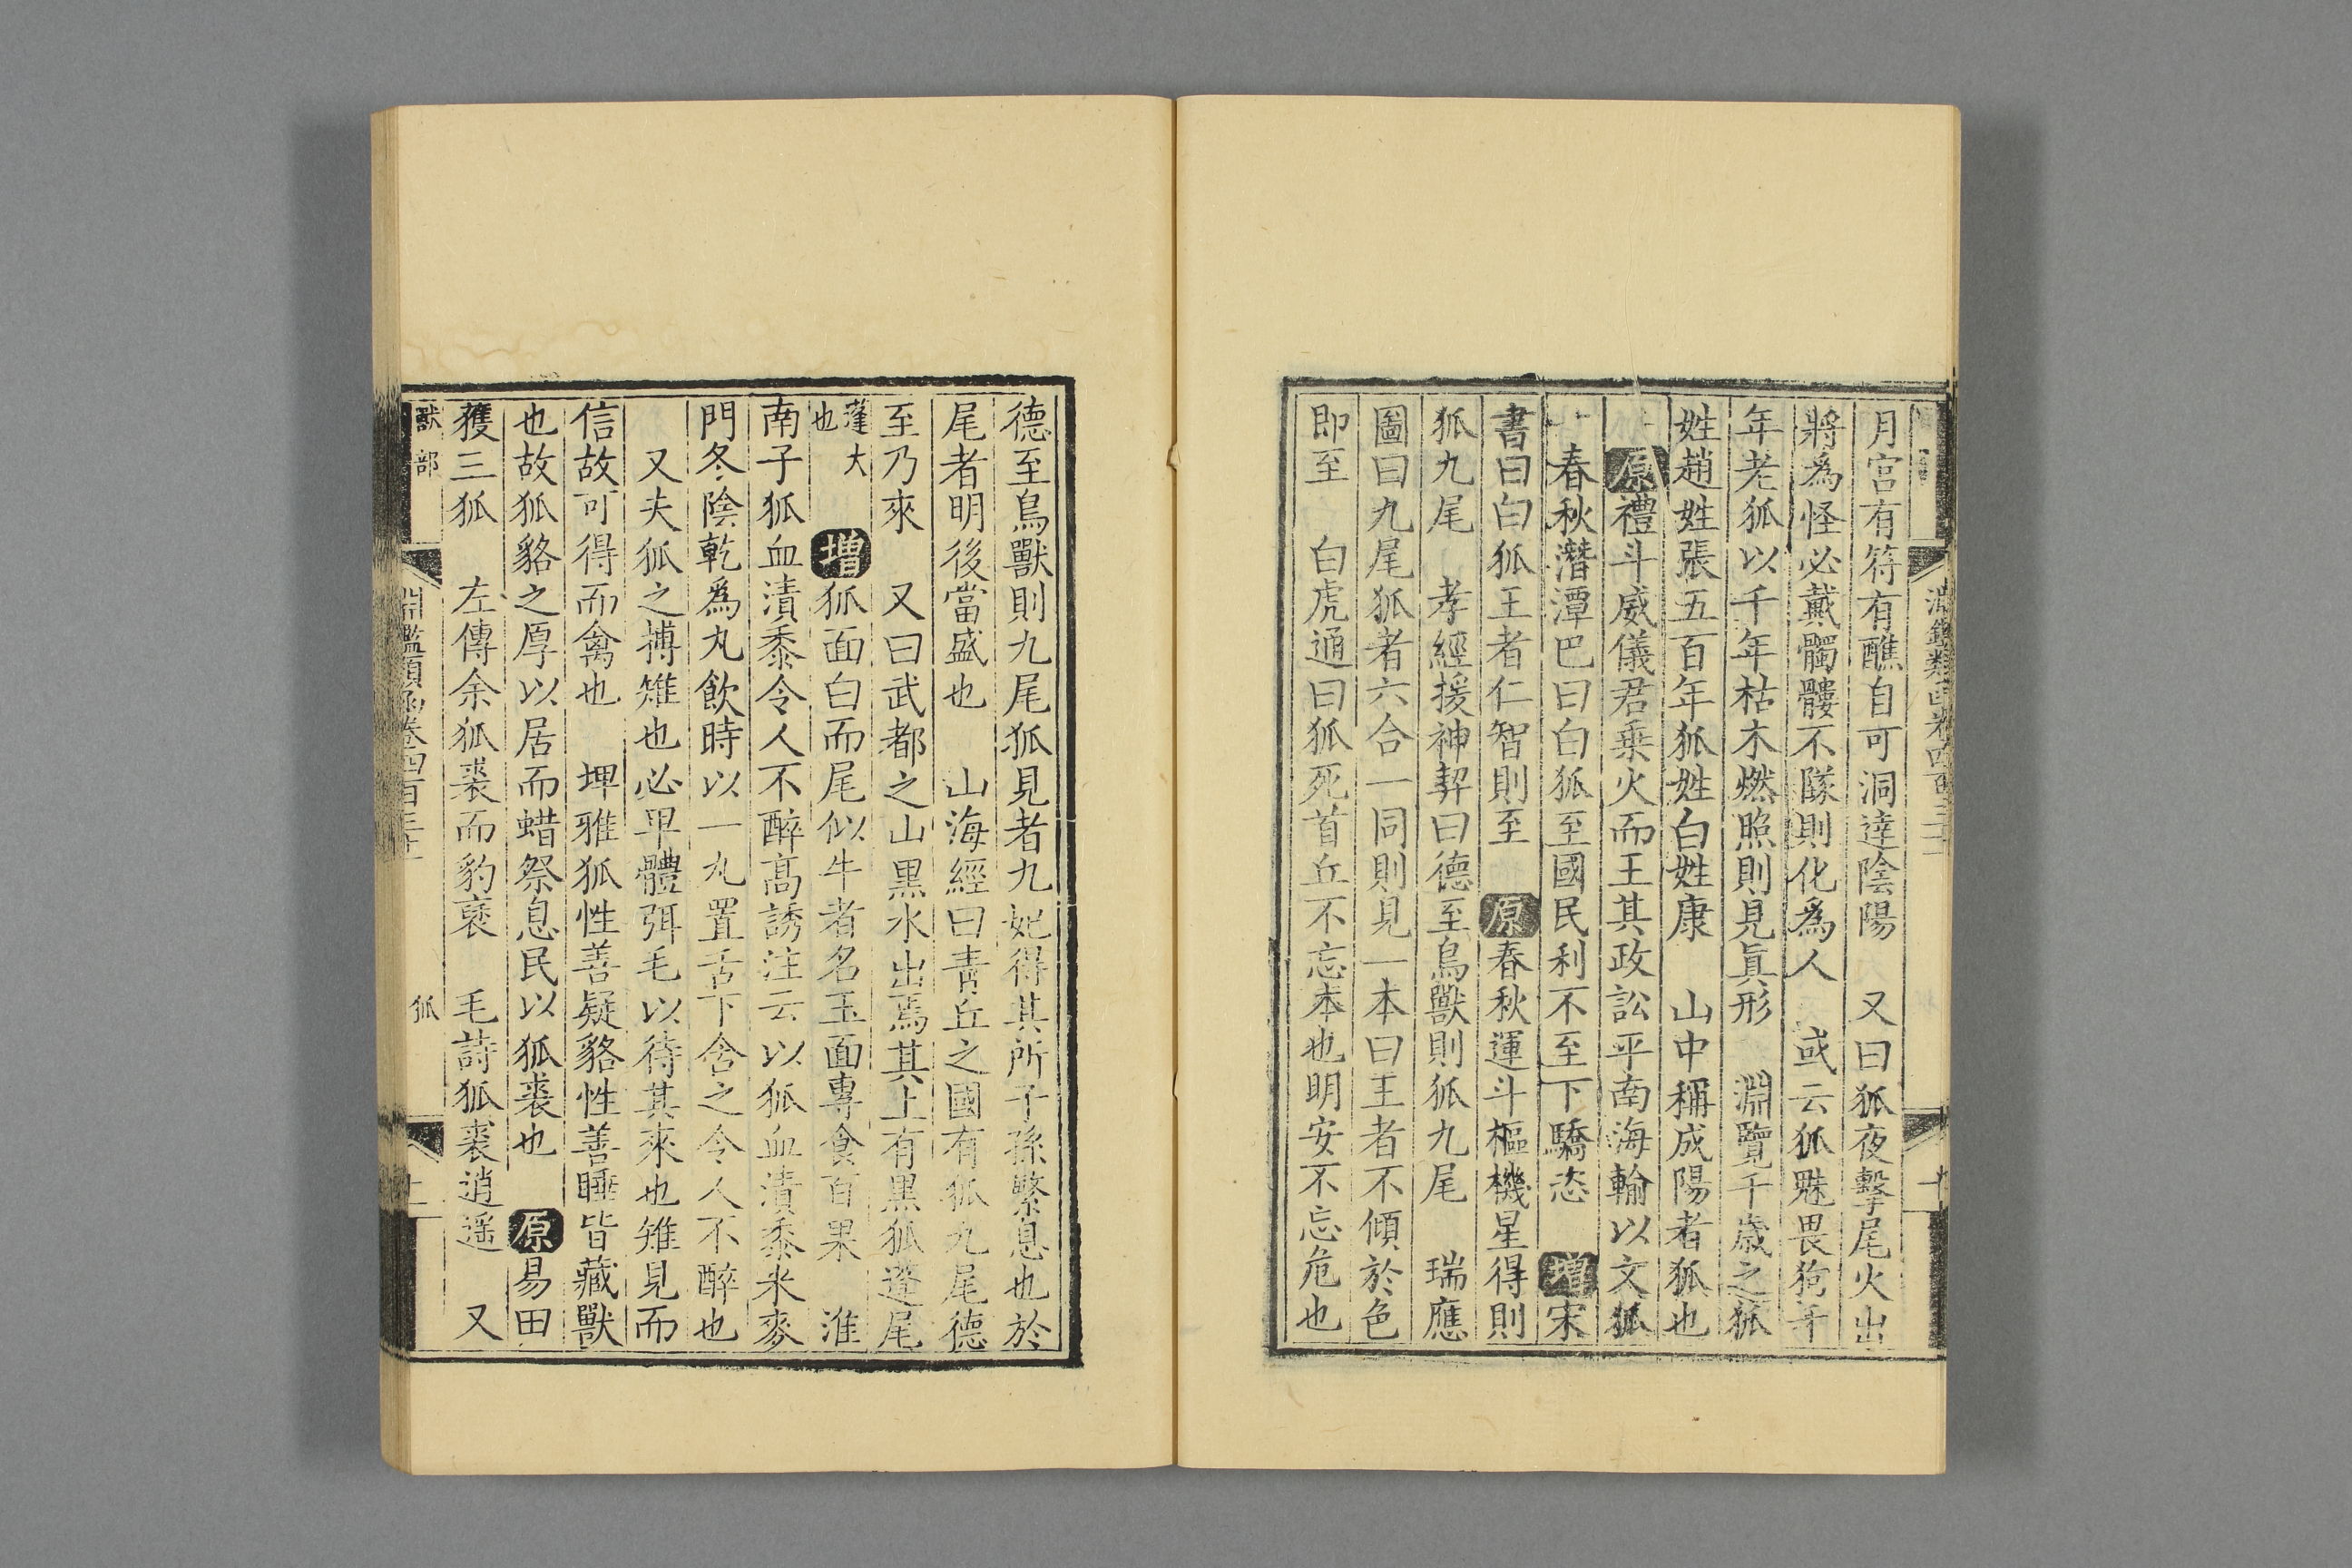 月宮有符有醮自可洞達陰陽　又曰狐夜擊尾火出
將爲怪必戴髑髏不隊則化爲人　或云狐魅畏狗千
年老狐以千年枯木燃照則見眞形　淵覽千歲之狐
姓趙姓張五百年狐姓白姓康　山中稱成陽者狐也
原禮斗威儀君乗火而王其政訟平南海輸以文狐
春秋潛潭巴曰白狐至國民利不至下驕恣　増宋
書曰白狐王者仁智則至　原春秋運斗樞機星得則
狐九尾　孝經援神契曰德至鳥獸則狐九尾　瑞應
圖曰九尾狐者六合一同則見一本曰王者不傾於色
即至　白虎通曰狐死首丘不忘本也明安不忘危也
德至鳥獸則九尾狐見者九妃得其所子孫繁息也於
尾者明後當盛也　山海經曰青丘之國有狐九尾德
至乃來　又曰武都之山黒水出焉其上有黒狐蓬尾
蓬大也　増狐面白而尾似牛者名玉面專食百果　淮
南子狐血漬黍令人不醉高誘注云以狐血漬黍米麥
門冬陰乾爲丸飲時以一丸置舌下含之令人不醉也
又夫狐之搏雉也必卑體弭毛以待其來也雉見而
信故可得而禽也　埤雅狐性善疑貉性善睡皆藏獸
也故狐貉之厚以居而蜡祭息民以狐裘也　原易田
獲三狐　左傳余狐裘而豹褎　毛詩狐裘逍遥　又
獸部　淵鑑類函卷四百三十一　狐